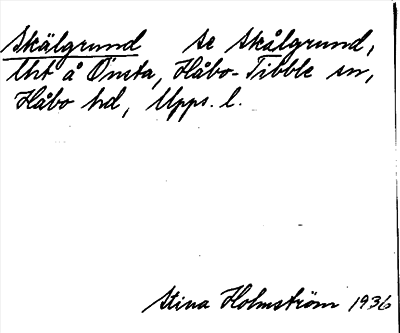 Skälgrund se Skålgrund,
Urt å Önsta, Håbo-Tibble sn,
Håbo hd, Upps. l.
Stina Holmström 1936